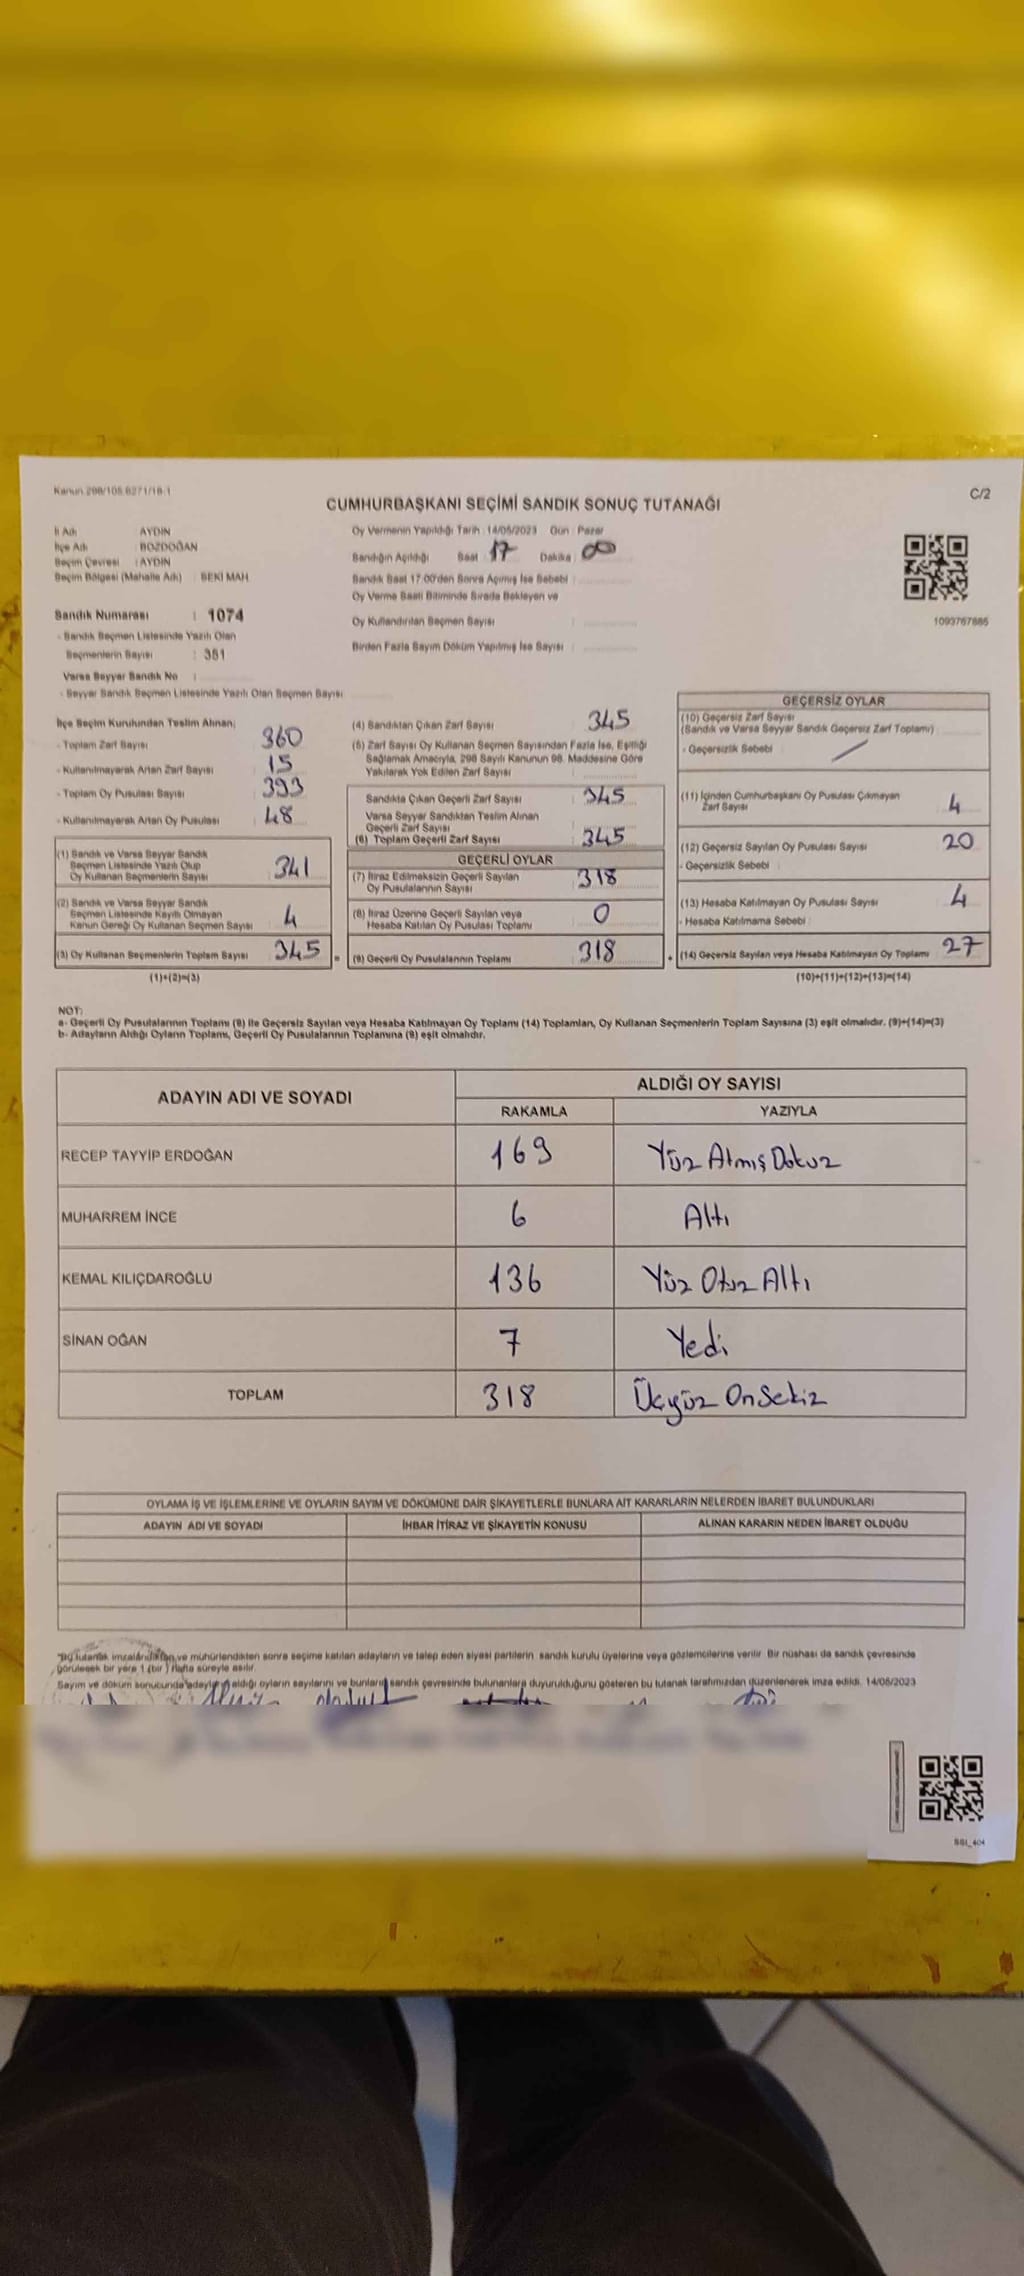 Kanun 298/105 6271/16-1
C/2
CUMHURBAŞKANI SEÇİMİ SANDIK SONUÇ TUTANAĞI
İl Adı : AYDIN
İlçe Adı : BOZDOĞAN
Seçim Çevresi : AYDIN
Seçim Bölgesi (Mahalle Adı) : SEKİ MAH.
Sandık Numarası : 1074
- Sandık Seçmen Listesinde Yazılı Olan
Seçmenlerin Sayısı : 351
Varsa Seyyar Sandık No :
- Seyyar Sandık Seçmen Listesinde Yazılı Olan Seçmen Sayısı
Oy Vermenin Yapıldığı Tarih : 14/05/2023 Gün : Pazar
Sandığın Açıldığı Saat 17 Dakika : 00
Sandık Saat 17.00'den Sonra Açılmış İse Sebebi :
Oy Verme Saati Bitiminde Sırada Bekleyen ve
Oy Kullandırılan Seçmen Sayısı :
Birden Fazla Sayım Döküm Yapılmış İse Sayısı :
1093767885
İlçe Seçim Kurulundan Teslim Alınan;
- Toplam Zarf Sayısı 360
- Kullanılmayarak Artan Zarf Sayısı 15
- Toplam Oy Pusulası Sayısı 393
- Kullanılmayarak Artan Oy Pusulası 48
(1) Sandık ve Varsa Seyyar Sandık
Seçmen Listesinde Yazılı Olup
Oy Kullanan Seçmenlerin Sayısı 341
(2) Sandık ve Varsa Seyyar Sandık
Seçmen Listesinde Kayıtlı Olmayan
Kanun Gereği Oy Kullanan Seçmen Sayısı 4
(3) Oy Kullanan Seçmenlerin Toplam Sayısı 345 =
(1)+(2)=(3)
(4) Sandıktan Çıkan Zarf Sayısı 345
(5) Zarf Sayısı Oy Kullanan Seçmen Sayısından Fazla İse, Eşitliği
Sağlamak Amacıyla, 298 Sayılı Kanunun 98. Maddesine Göre
Yakılarak Yok Edilen Zarf Sayısı :
Sandıkta Çıkan Geçerli Zarf Sayısı 345
Varsa Seyyar Sandıktan Teslim Alınan
Geçerli Zarf Sayısı
(6) Toplam Geçerli Zarf Sayısı 345
GEÇERLİ OYLAR
(7) İtiraz Edilmeksizin Geçerli Sayılan
Oy Pusulalarının Sayısı 318
(8) İtiraz Üzerine Geçerli Sayılan veya
Hesaba Katılan Oy Pusulası Toplamı 0
(9) Geçerli Oy Pusulalarının Toplamı 318 +
GEÇERSİZ OYLAR
(10) Geçersiz Zarf Sayısı
(Sandık ve Varsa Seyyar Sandık Geçersiz Zarf Toplamı)
- Geçersizlik Sebebi :
(11) İçinden Cumhurbaşkanı Oy Pusulası Çıkmayan
Zarf Sayısı 4
(12) Geçersiz Sayılan Oy Pusulası Sayısı 20
- Geçersizlik Sebebi :
(13) Hesaba Katılmayan Oy Pusulası Sayısı 4
- Hesaba Katılmama Sebebi :
(14) Geçersiz Sayılan veya Hesaba Katılmayan Oy Toplamı 27
(10)+(11)+(12)+(13)=(14)
NOT:
a- Geçerli Oy Pusulalarının Toplamı (9) ile Geçersiz Sayılan veya Hesaba Katılmayan Oy Toplamı (14) Toplamları, Oy Kullanan Seçmenlerin Toplam Sayısına (3) eşit olmalıdır. (9)+(14)=(3)
b- Adayların Aldığı Oyların Toplamı, Geçerli Oy Pusulalarının Toplamına (9) eşit olmalıdır.
ADAYIN ADI VE SOYADI ALDIĞI OY SAYISI
RAKAMLA YAZIYLA
RECEP TAYYİP ERDOĞAN 169 Yüz Atmış Dokuz
MUHARREM İNCE 6 Altı
KEMAL KILIÇDAROĞLU 136 Yüz Otuz Altı
SİNAN OĞAN 7 Yedi
TOPLAM 318 Üçyüz OnSekiz
OYLAMA İŞ VE İŞLEMLERİNE VE OYLARIN SAYIM VE DÖKÜMÜNE DAİR ŞİKAYETLERLE BUNLARA AİT KARARLARIN NELERDEN İBARET BULUNDUKLARI
ADAYIN ADI VE SOYADI İHBAR İTİRAZ VE ŞİKAYETİN KONUSU ALINAN KARARIN NEDEN İBARET OLDUĞU
*Bu tutanak imzalandıktan ve mühürlendikten sonra seçime katılan adayların ve talep eden siyasi partilerin sandık kurulu üyelerine veya gözlemcilerine verilir. Bir nüshası da sandık çevresinde
görülecek bir yere 1 (bir) hafta süreyle asılır.
Sayım ve döküm sonucunda adayların aldığı oyların sayılarını ve bunların sandık çevresinde bulunanlara duyurulduğunu gösteren bu tutanak tarafımızdan düzenlenerek imza edildi. 14/05/2023
SSI_404